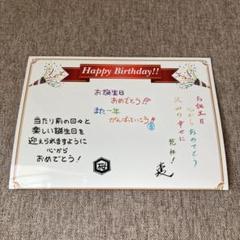 Happy Birthday!!
お誕生日
おめでとう!!
また一年
がんばっていこう!
当たり前の日々と
楽しい誕生日を
迎えられますように
心から
おめでとう!
お誕生日
心からおめでとう
沢山の幸せに
乾杯!